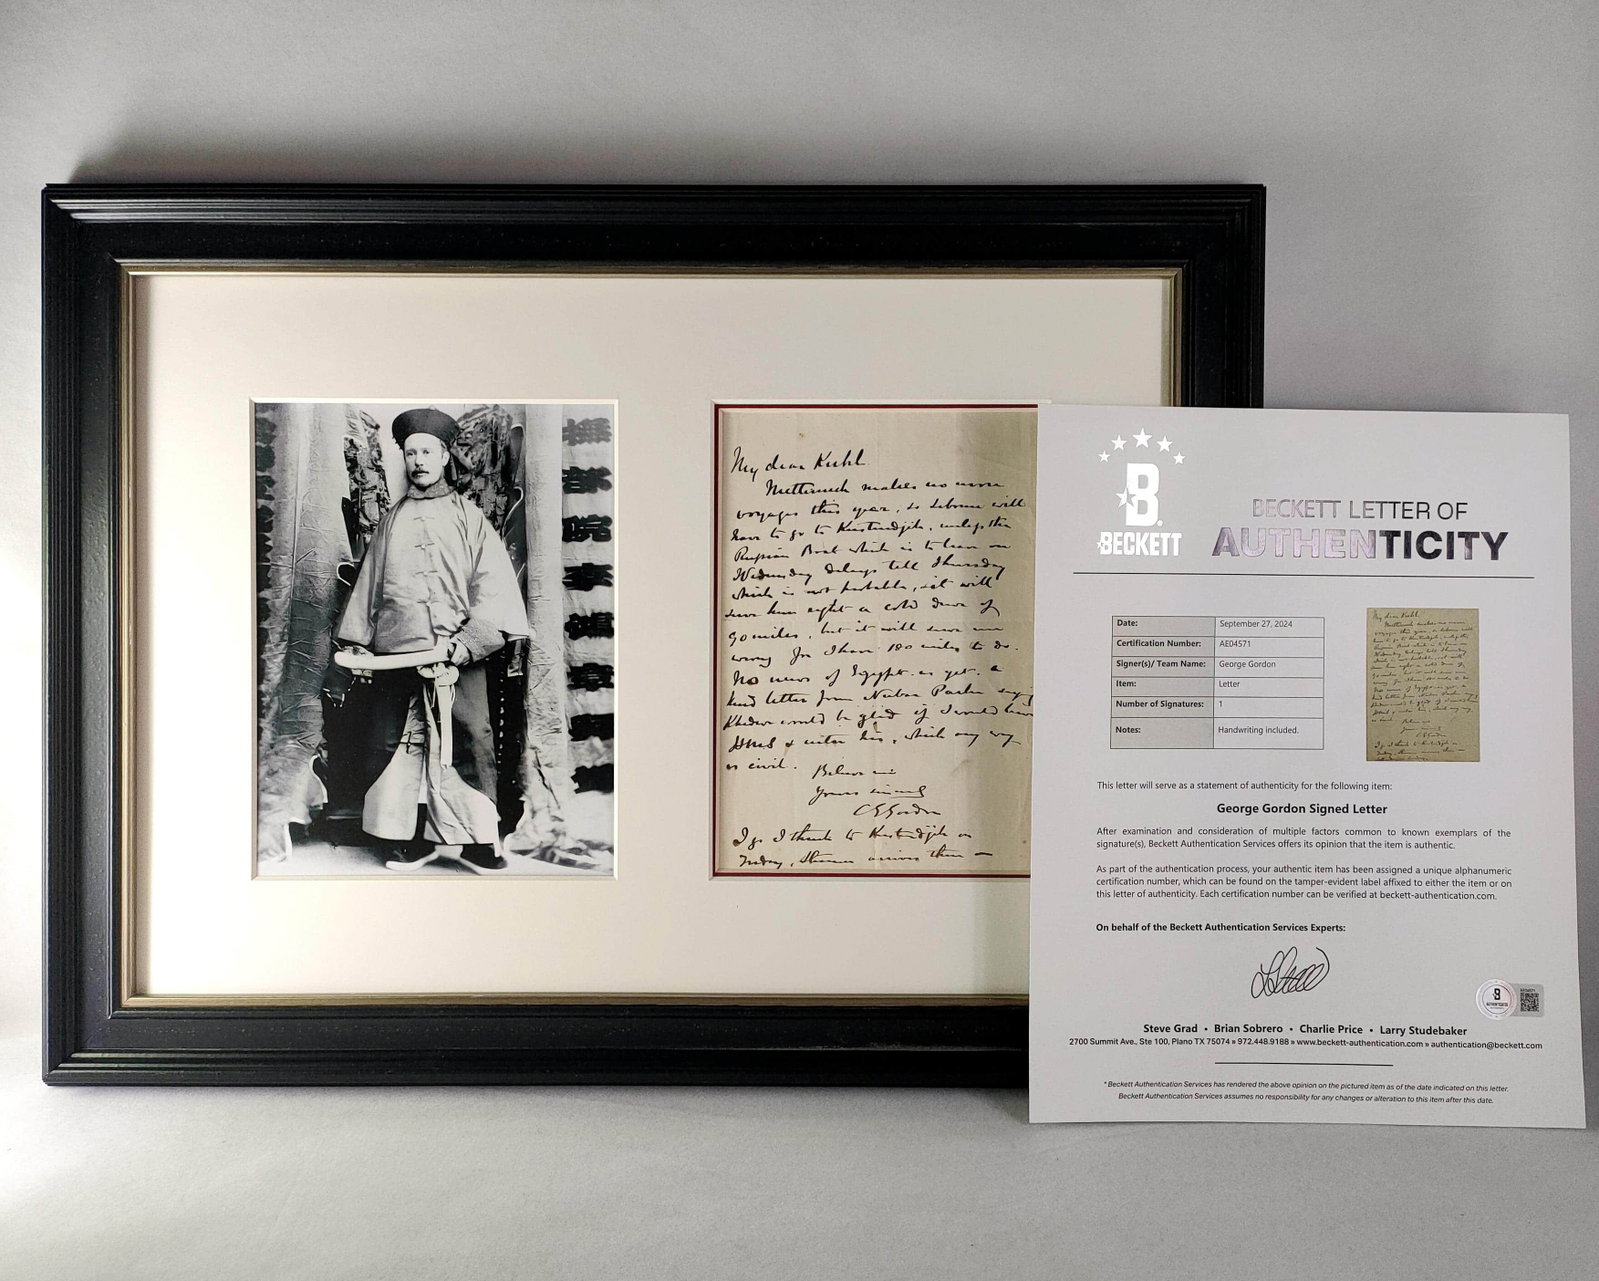 My dear Kuhl
makes no more
voyages this year, so will
have to go to Kustendjih, unless the
Russian Boat which is to leave on
Wednesday delays till Thursday
which is not probable, it will
him eight a cold drive of
90 miles, but it will serve me
wrong for I have 180 miles to do.
No news of Egypt as yet. a
kind letter from Nubar Pasha say
Khedive would be glad if I would
& enter his, which any way
is civil. Believe me
Yours sincerely
C E Gordon
I go I think to Kustendjih on
Friday, Steamer arrives then —
BECKETT
BECKETT LETTER OF
AUTHENTICITY
Date: September 27, 2024
Certification Number: AE04571
Signer(s)/ Team Name: George Gordon
Item: Letter
Number of Signatures: 1
Notes: Handwriting included.
This letter will serve as a statement of authenticity for the following item:
George Gordon Signed Letter
After examination and consideration of multiple factors common to known exemplars of the
signature(s), Beckett Authentication Services offers its opinion that the item is authentic.
As part of the authentication process, your authentic item has been assigned a unique alphanumeric
certification number, which can be found on the tamper-evident label affixed to either the item or on
this letter of authenticity. Each certification number can be verified at beckett-authentication.com.
On behalf of the Beckett Authentication Services Experts:
Steve Grad • Brian Sobrero • Charlie Price • Larry Studebaker
2700 Summit Ave., Ste 100, Plano TX 75074 » 972.448.9188 » www.beckett-authentication.com » authentication@beckett.com
* Beckett Authentication Services has rendered the above opinion on the pictured item as of the date indicated on this letter.
Beckett Authentication Services assumes no responsibility for any changes or alteration to this item after this date.